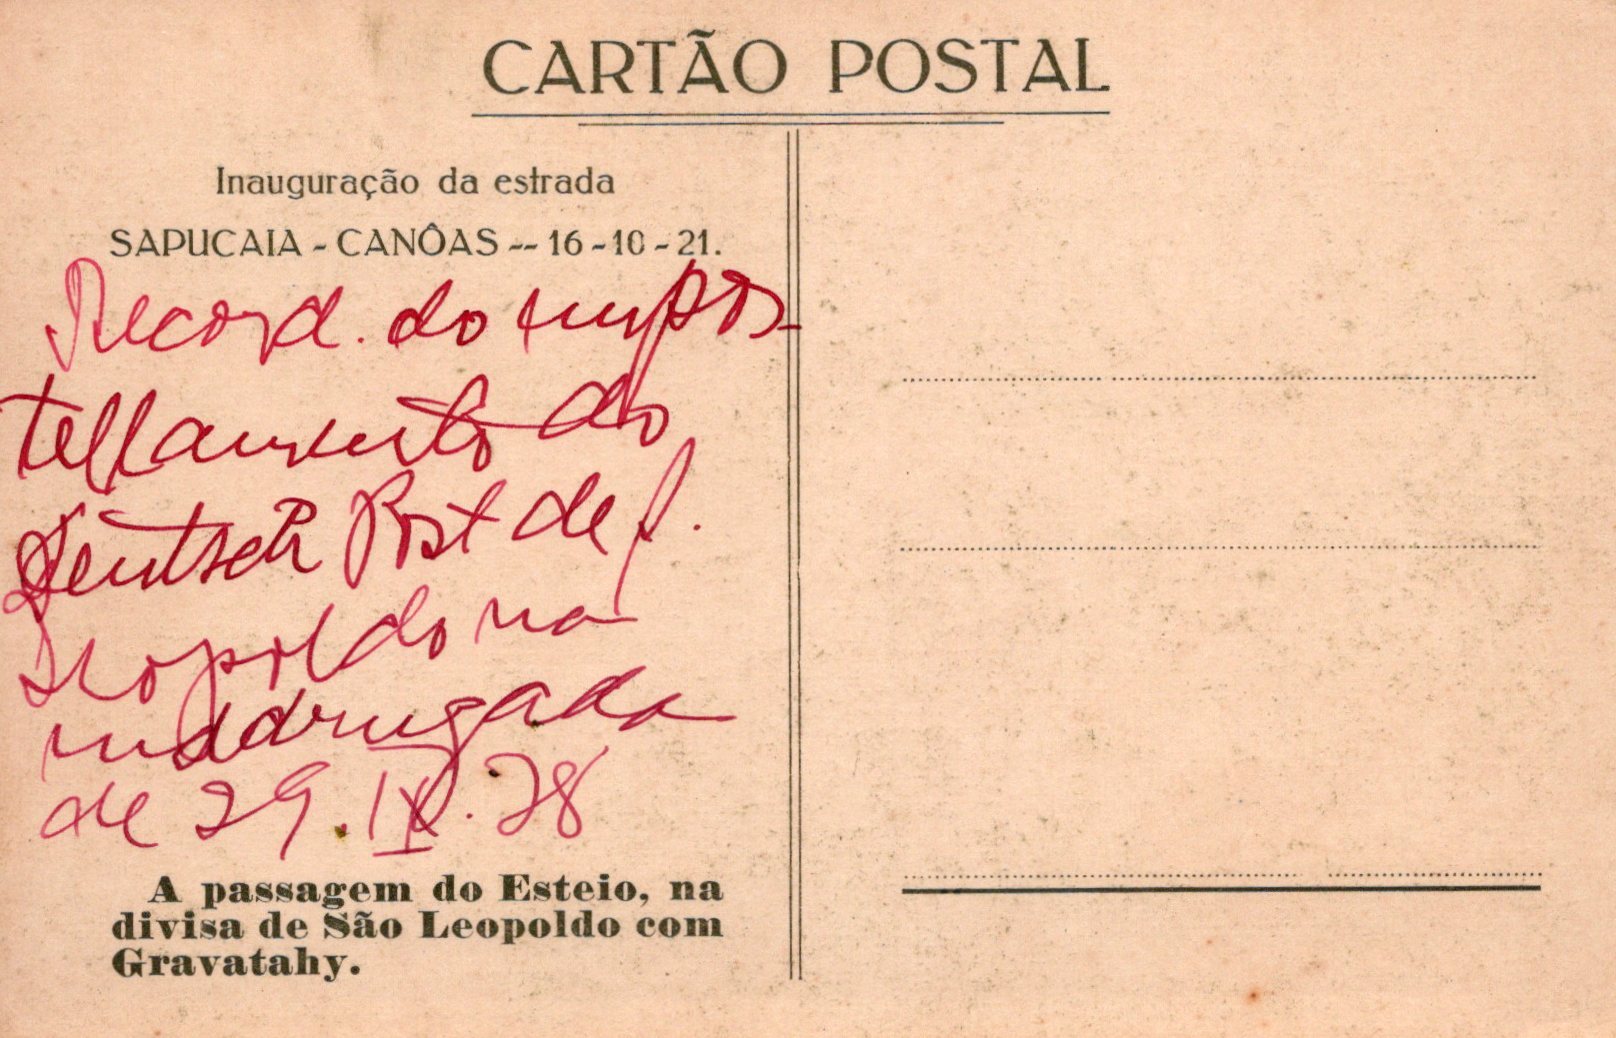 CARTÃO POSTAL
Inauguração da estrada
SAPUCAIA - CANÔAS -- 16-10-21.
Record. do
do
Deutsch Post de S.
Leopoldo na
madrugada
de 29.IX.28
A passagem do Esteio, na
divisa de São Leopoldo com
Gravatahy.